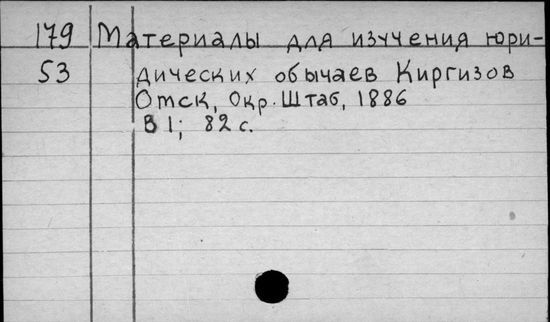 179 Материалы для изучения юри-
53 дических обычаев Киргизов
Омск, Окр. Штаб, 1886
В 1; 82 с.